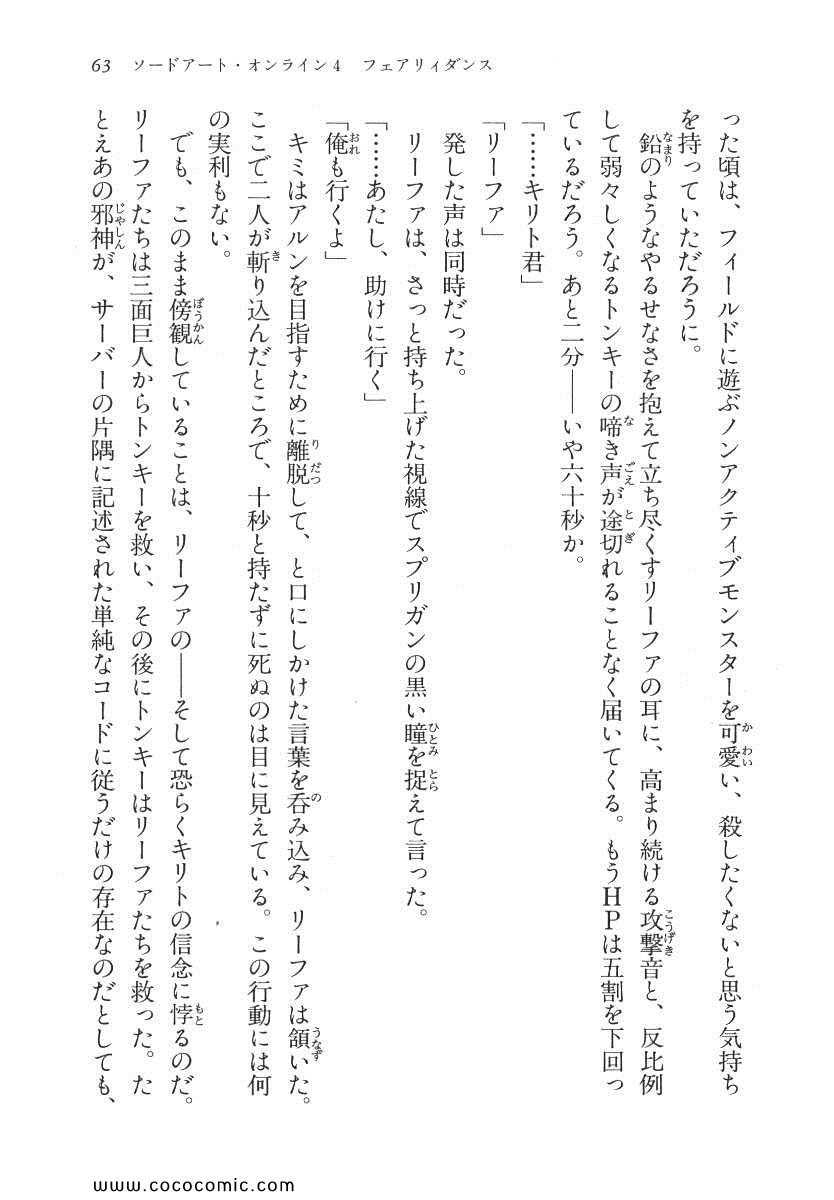 63　ソードアート・オンライン4　フェアリィダンス
った頃は、フィールドに遊ぶノンアクティブモンスターを可愛い、殺したくないと思う気持ち
を持っていただろうに。
　鉛のようなやるせなさを抱えて立ち尽くすリーファの耳に、高まり続ける攻撃音と、反比例
して弱々しくなるトンキーの啼き声が途切れることなく届いてくる。もうＨＰは五割を下回っ
ているだろう。あと二分――いや六十秒か。
「……キリト君」
「リーファ」
　発した声は同時だった。
　リーファは、さっと持ち上げた視線でスプリガンの黒い瞳を捉えて言った。
「……あたし、助けに行く」
「俺も行くよ」
　キミはアルンを目指すために離脱して、と口にしかけた言葉を呑み込み、リーファは頷いた。
ここで二人が斬り込んだところで、十秒と持たずに死ぬのは目に見えている。この行動には何
の実利もない。
　でも、このまま傍観していることは、リーファの――そして恐らくキリトの信念に悖るのだ。
リーファたちは三面巨人からトンキーを救い、その後にトンキーはリーファたちを救った。た
とえあの邪神が、サーバーの片隅に記述された単純なコードに従うだけの存在なのだとしても、
www.cococomic.com